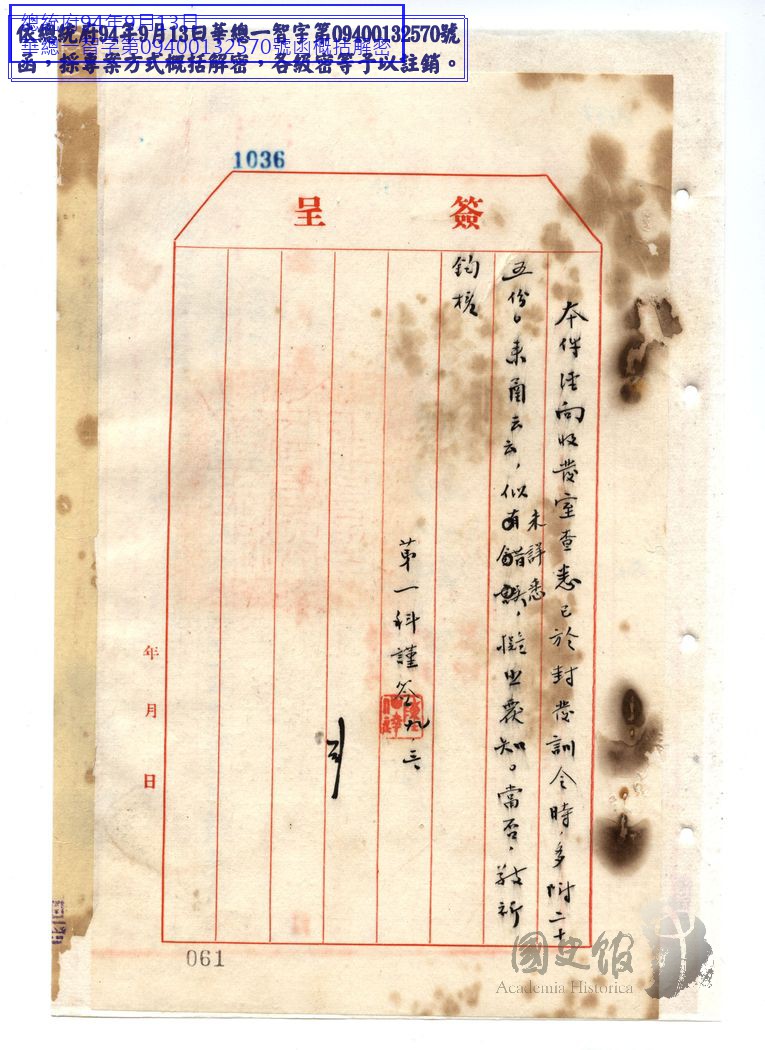 總統府94年9月13日
華總一智字第09400132570號函概括解密
依總統府94年9月13日華總一智字第09400132570號
函，採專案方式概括解密，各級密等予以註銷。
1036
簽呈
本件經向收發室查悉已於封發訓令時，多附二十
五份。來函云云，似有錯誤，擬出覆知。當否，敬祈
未詳悉
鈞核
第一科謹簽 九、三
年月日
061
國史館
Academia Historica